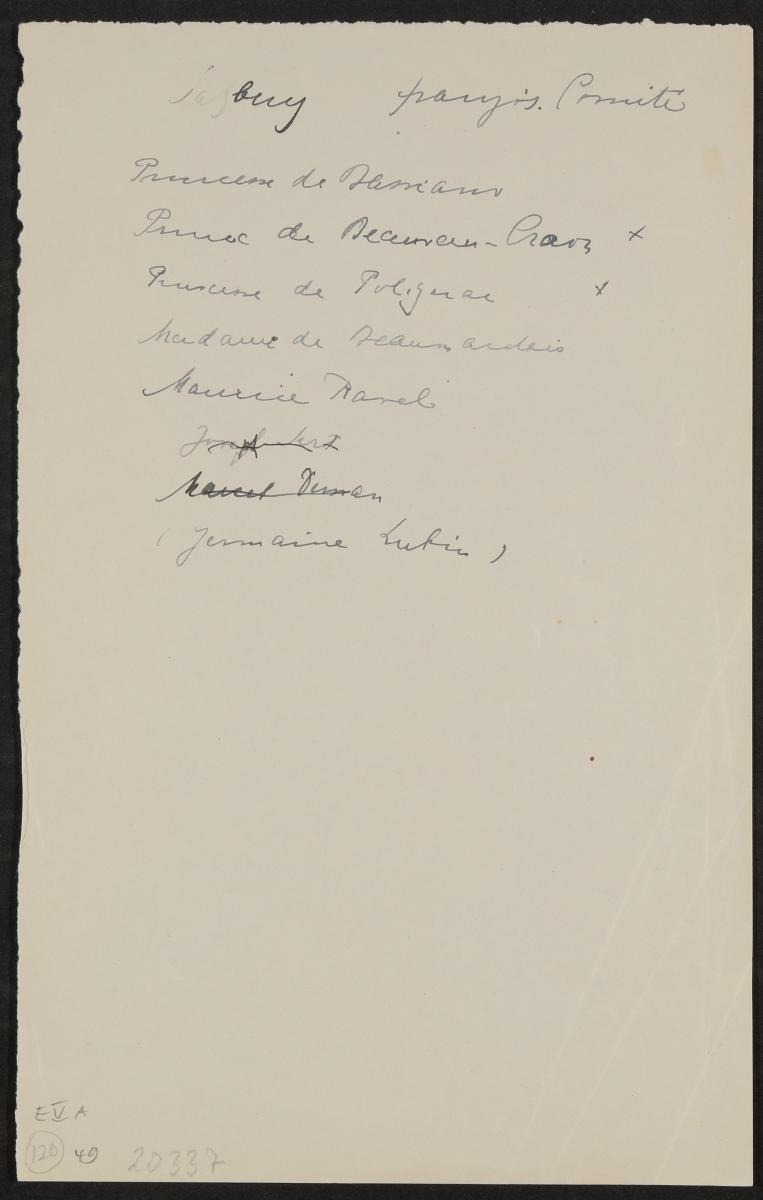 Salzburg französ. Comité
Princesse de Bassiano
Prince de Beauvau-Craon x
Princesse de Polignac x
Madame de Beaumarchais
Maurice Ravel
Marcel
(Germaine Lubin)
E V A
120 49 20337